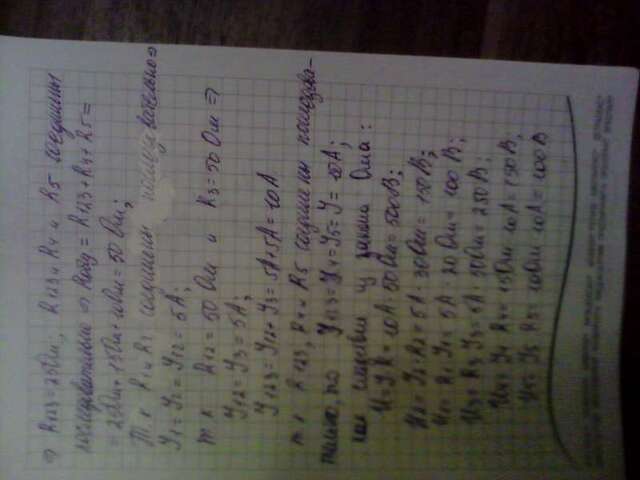 ⇒ R123 = 25 Ом, R123 и R4 и R5 соединены
последовательно ⇒ Rобщ = R123 + R4 + R5 =
= 25 Ом + 15 Ом + 10 Ом = 50 Ом;
Т.к R1 и R2 соединены последовательно ⇒
У1 = У2 = У12 = 5А;
т к R12 = 50 Ом и R3 = 50 Ом ⇒
У12 = У3 = 5А;
У123 = У12 + У3 = 5А + 5А = 10А
т к R123, R4 и R5 соединены последова-
тельно, то У123 = У4 = У5 = У = 10А;
из закона Ома:
U = У R = 10А · 50 Ом = 500В;
U2 = У2 R2 = 5А · 30 Ом = 150 В;
U1 = R1 У1 = 5А · 20 Ом = 100 В;
U3 = R3 У3 = 5А · 50 Ом = 250 В;
U4 = У4 R4 = 15 Ом · 10А = 150 В;
U5 = У5 R5 = 10 Ом · 10А = 100 В